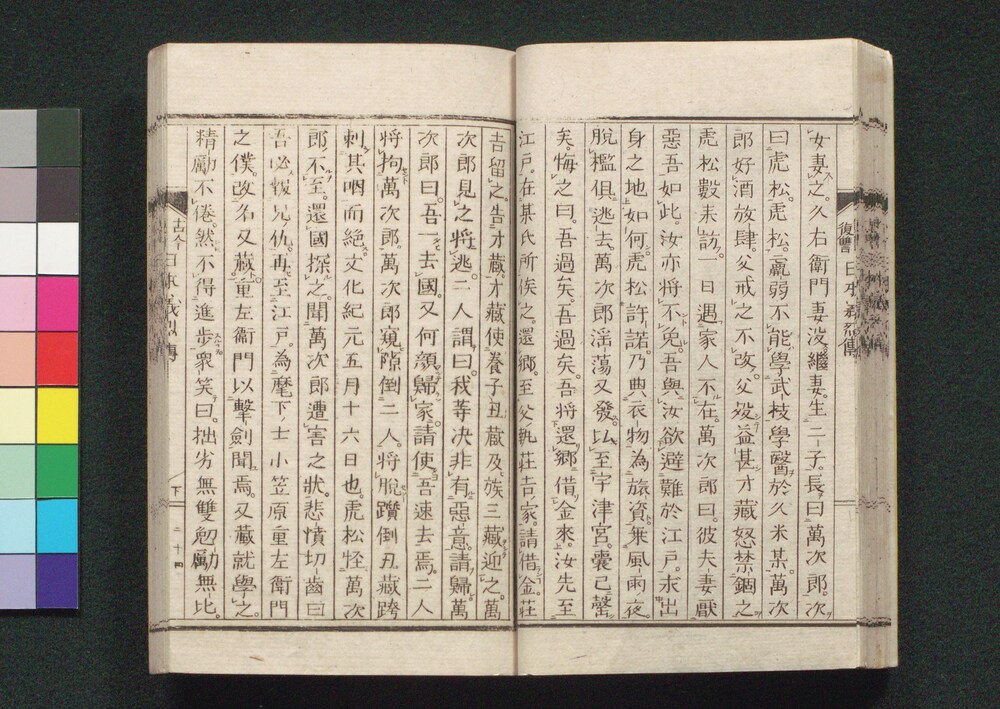 女妻之。久右衛門妻没。繼妻。生二子。長曰萬次郎。次
曰虎松。虎松。羸弱不能學武技。學醫於久米某。萬次
郎好酒放肆。父戒之不改。父歿益甚。才藏怒禁錮之。
虎松數来訪。一日遇家人不在。萬次郎曰。彼夫妻厭
惡吾如此。汝亦將不免。吾與汝欲避難於江戸。求出
身之地如何。虎松許諾。乃典衣物為旅資。乗風雨夜。
脱檻俱逃去。萬次郎淫蕩又發。比至宇津宮。囊已罄
矣。悔之曰。吾過矣。吾過矣。吾將還郷借金來。汝先至
江戸。在某氏所俟之。還郷。至父執莊吉家。請借金。莊
吉留之。告才藏。才藏使養子丑藏及族三藏迎之。萬
次郎見之將逃。二人謂曰。我等决非有惡意。請歸。萬
次郎曰。吾一去國。又何顔歸家。請使吾速去焉。二人
將拘萬次郎。萬次郎窺隙倒二人。將脱。躓倒。丑藏跨
刺其咽而絶。文化紀元五月十六日也。虎松怪萬次
郎不至。還國探之。聞萬次郎遭害之狀。悲憤切齒曰
吾必報兄仇。再至江戸。為麾下士小笠原重左衛門
之僕。改名又藏。重左衛門以擊劍聞焉。又藏就學之。
精勵不倦。然不得進歩。衆笑曰。拙劣無雙勉勵無比。
復讐
古今日本義烈傳
下
二十四